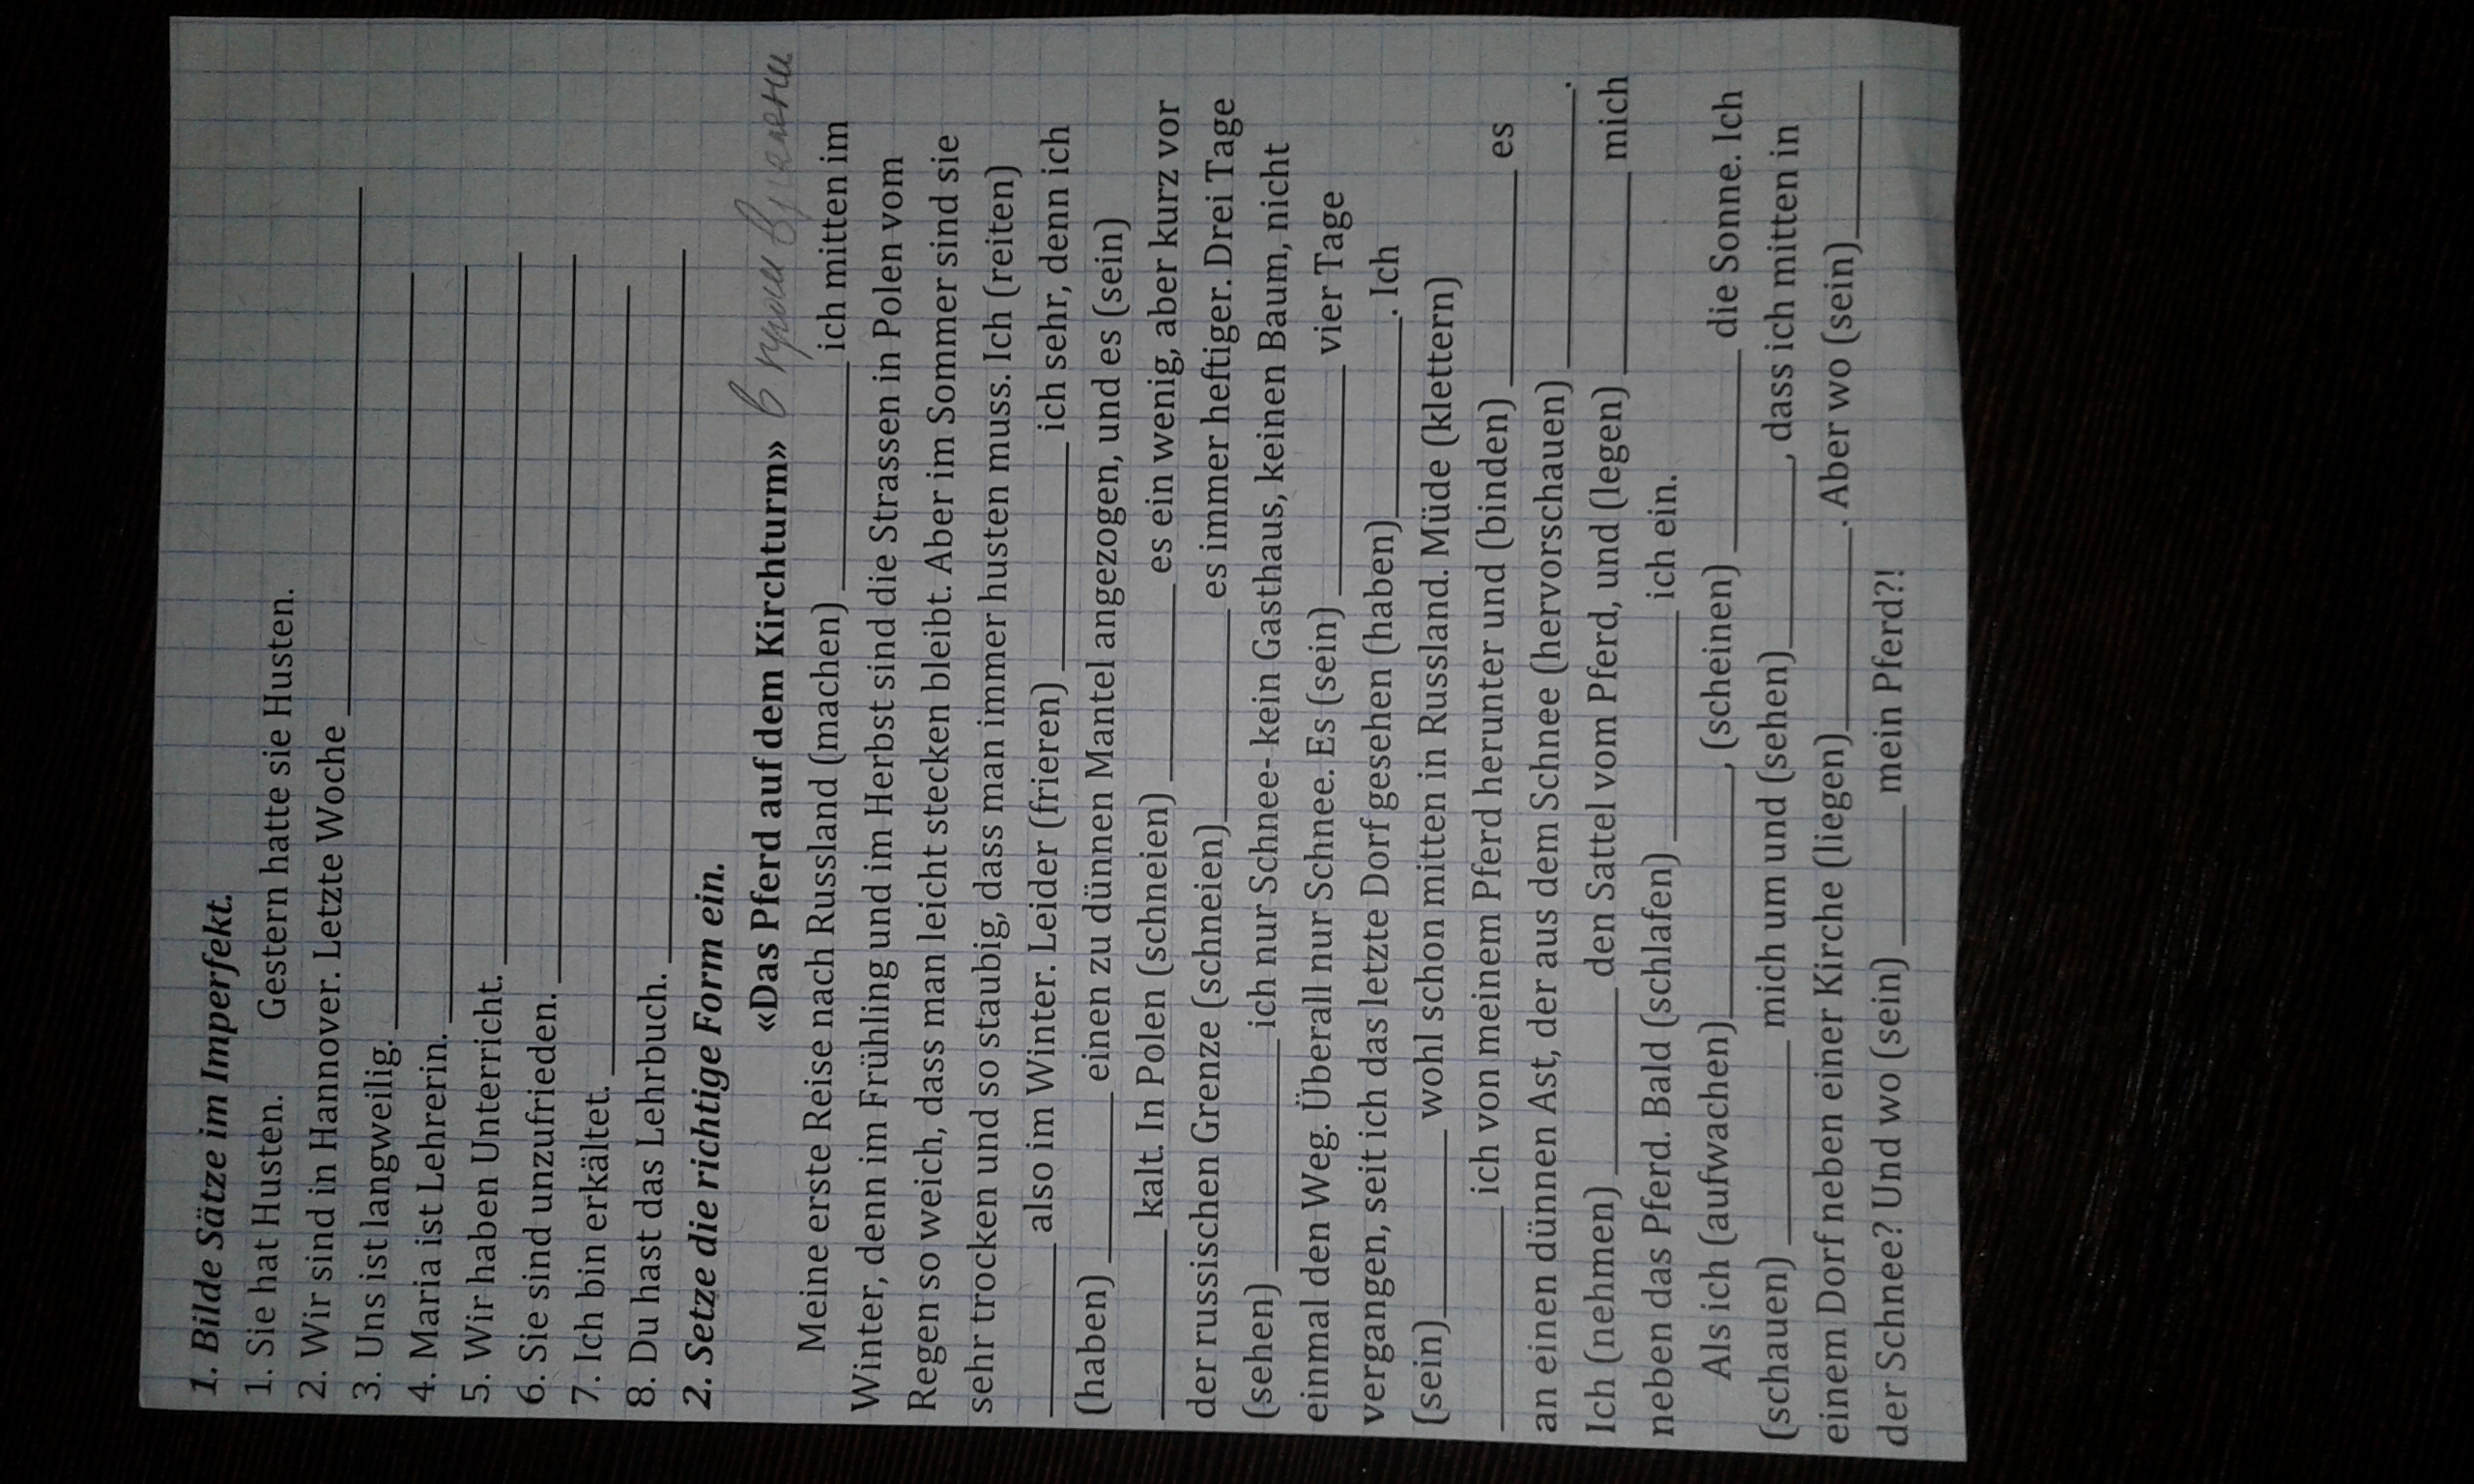 1. Bilde Sätze im Imperfekt.
1. Sie hat Husten. Gestern hatte sie Husten.
2. Wir sind in Hannover. Letzte Woche ____________
3. Uns ist langweilig.____________
4. Maria ist Lehrerin.____________
5. Wir haben Unterricht.____________
6. Sie sind unzufrieden.____________
7. Ich bin erkältet.____________
8. Du hast das Lehrbuch.____________
2. Setze die richtige Form ein.
«Das Pferd auf dem Kirchturm» в прош времени
Meine erste Reise nach Russland (machen)________ ich mitten im
Winter, denn im Frühling und im Herbst sind die Strassen in Polen vom
Regen so weich, dass man leicht stecken bleibt. Aber im Sommer sind sie
sehr trocken und so staubig, dass man immer husten muss. Ich (reiten)
________ also im Winter. Leider (frieren)________ ich sehr, denn ich
(haben)________ einen zu dünnen Mantel angezogen, und es (sein)
________ kalt. In Polen (schneien)________ es ein wenig, aber kurz vor
der russischen Grenze (schneien)________ es immer heftiger. Drei Tage
(sehen)________ ich nur Schnee- kein Gasthaus, keinen Baum, nicht
einmal den Weg. Überall nur Schnee. Es (sein)________ vier Tage
vergangen, seit ich das letzte Dorf gesehen (haben)________. Ich
(sein)________ wohl schon mitten in Russland. Müde (klettern)
________ ich von meinem Pferd herunter und (binden)________ es
an einen dünnen Ast, der aus dem Schnee (hervorschauen)________.
Ich (nehmen)________ den Sattel vom Pferd, und (legen)________ mich
neben das Pferd. Bald (schlafen)________ ich ein.
Als ich (aufwachen)________, (scheinen)________ die Sonne. Ich
(schauen)________ mich um und (sehen)________, dass ich mitten in
einem Dorf neben einer Kirche (liegen)________. Aber wo (sein)________
der Schnee? Und wo (sein)________ mein Pferd?!